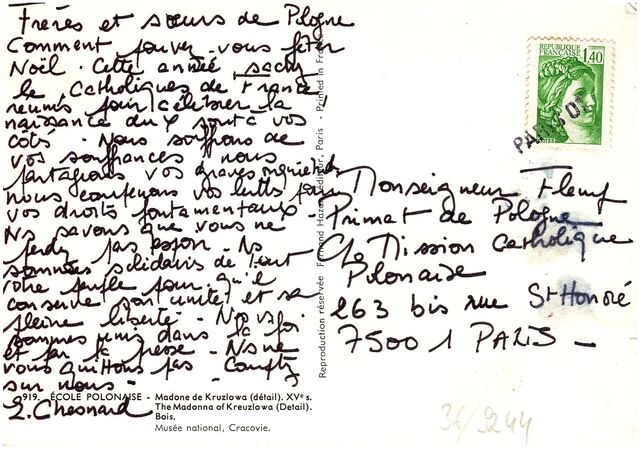 Frères et sœurs de Pologne
Comment pouvez-vous fêter
Noël. Cette année, sachez
le, Catholiques de France
réunis pour célébrer la
naissance du X sont à vos
côtés - Nous souffrons de
vos souffrances, nous
partageons vos graves inquiétudes
nous soutenons vos luttes pour
vos droits fontamentaux -
Ns savons que vous ne
perdez pas espoir - Ns
sommes solidaires de tout
votre peuple pour qu'il
conserve son unité et sa
pleine liberté - Nous
sommes unis dans la foi
et par la - Ns ne
vous quittons pas Comptez
sur nous -
E. Chesnard
Monseigneur
Primat de Pologne
C/o Mission Catholique
Polonaise
263 bis rue St Honoré
75001 PARIS -
REPUBLIQUE
FRANÇAISE
1,40
POSTES
PARIS 01
Reproduction réservée Fernand Hazan, éditeur, Paris - Printed in France
919. ÉCOLE POLONAISE - Madone de Kruzlowa (détail). XVe s.
The Madonna of Kreuzlowa (Detail).
Bois.
Musée national, Cracovie.
36/9244